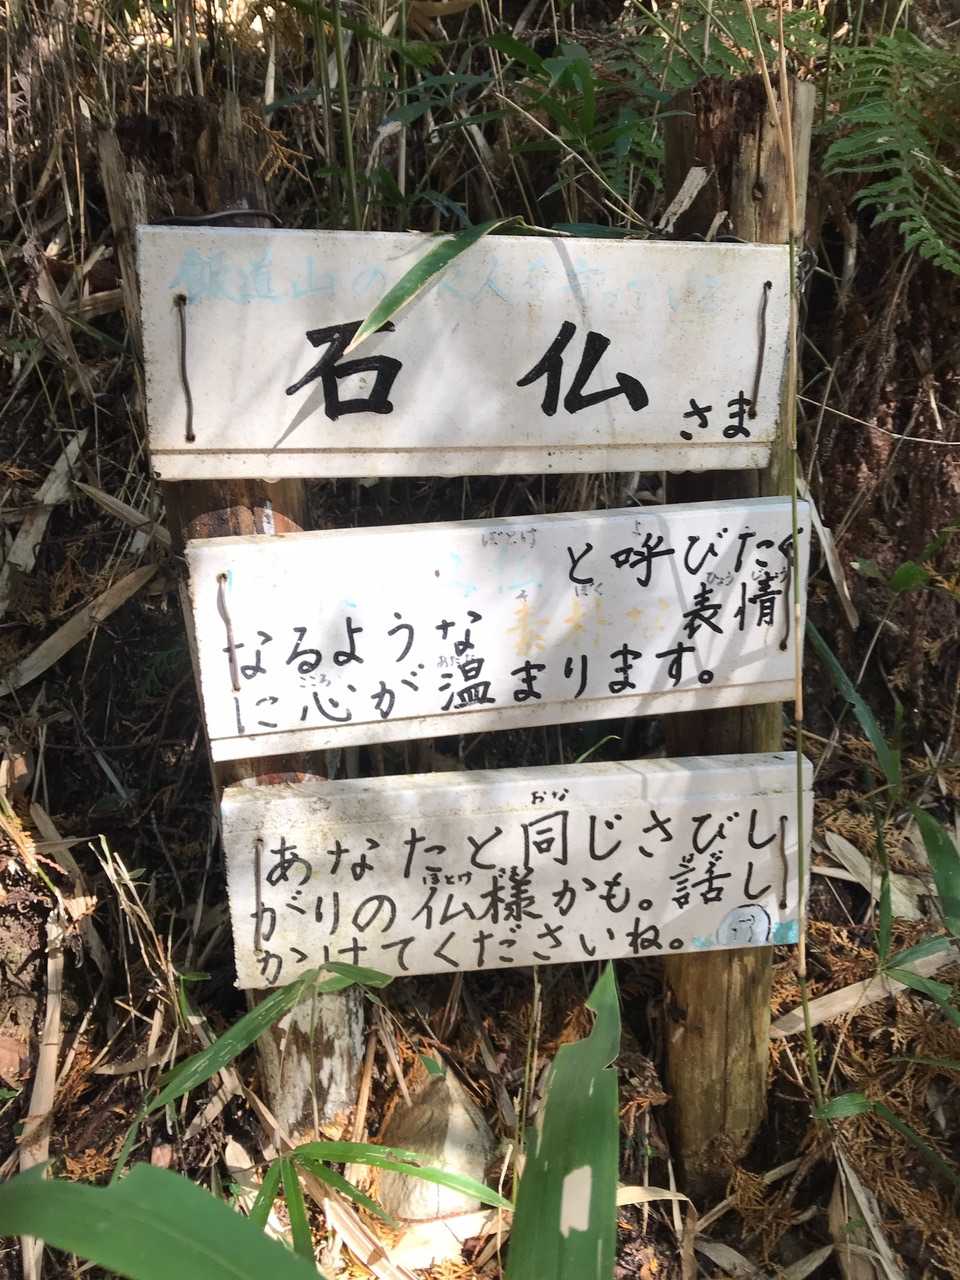 飯道山の
石仏さま
仏と呼びたく
なるような素朴な表情
に心が温まります。
あなたと同じさびし
がりの仏様かも。話し
かけてくださいね。